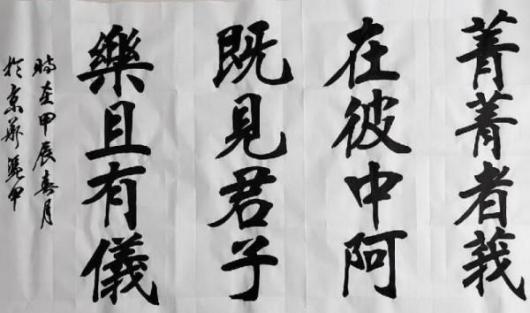 菁菁者莪
在彼中阿
既見君子
樂且有儀
時在甲辰春月
於京